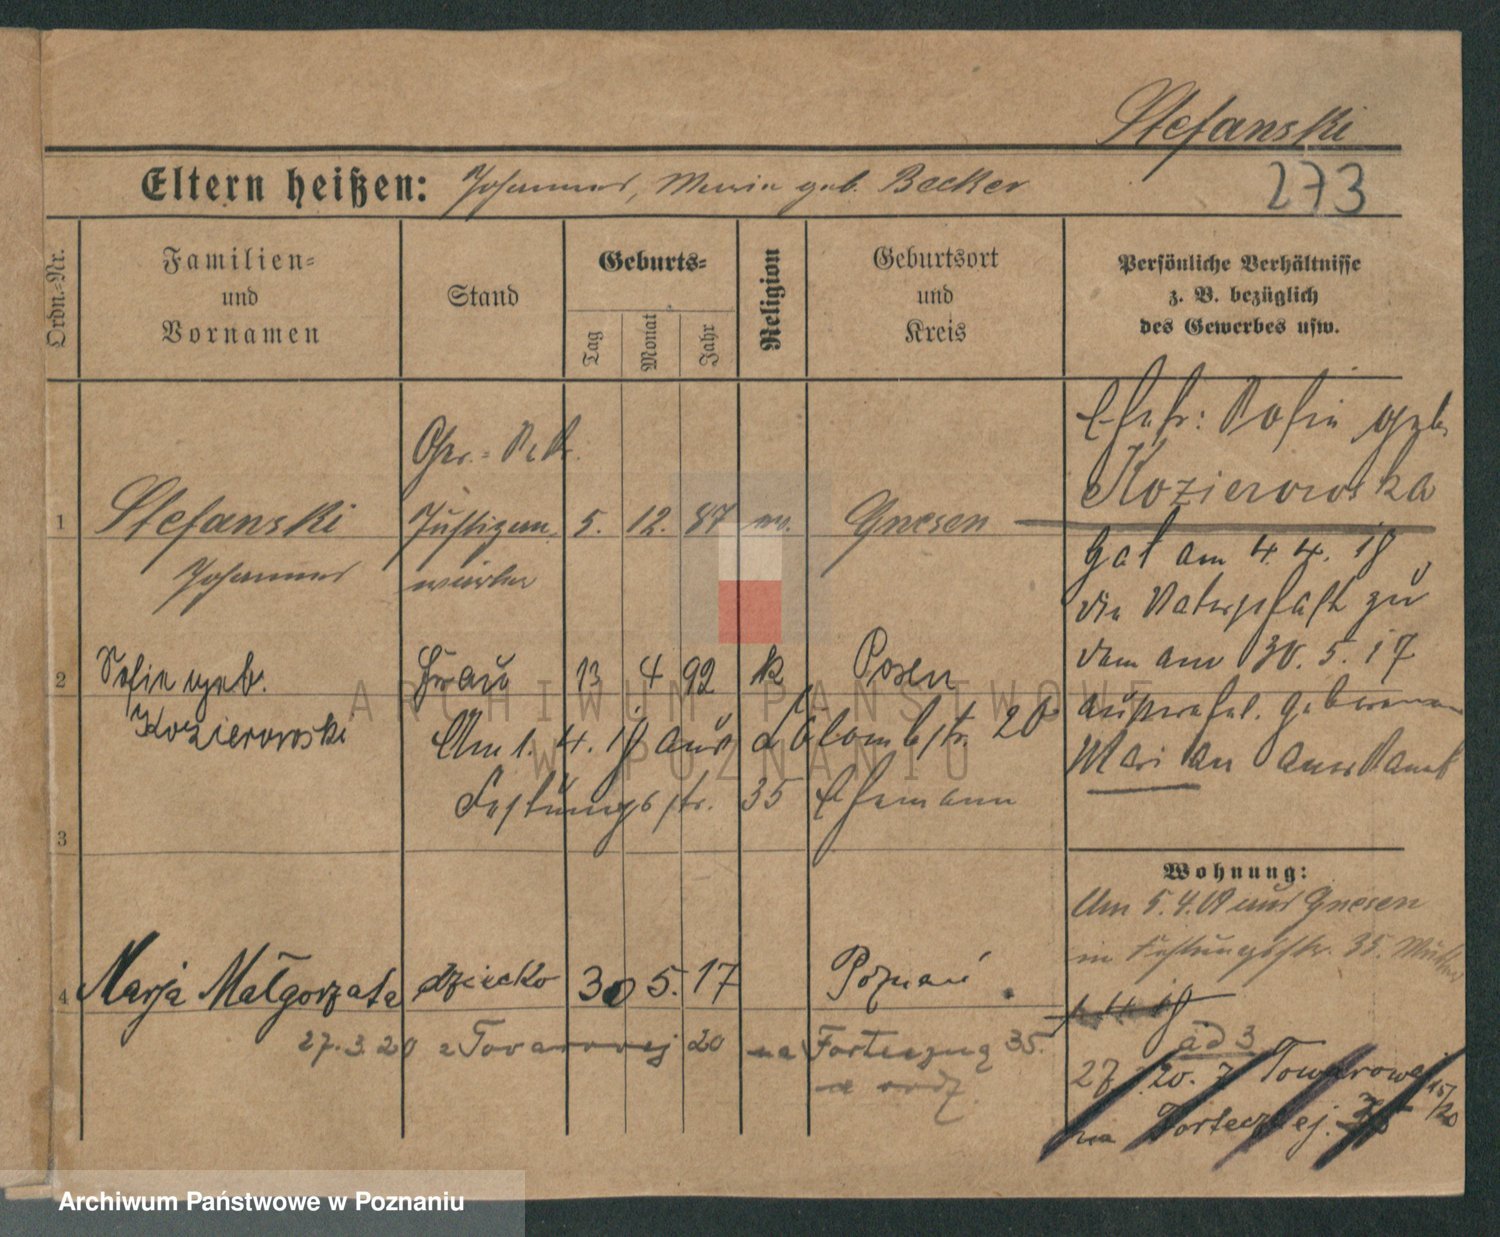 Stefanski
273
Eltern heißen: Johannes, Maria geb. Becker
Ordn.=Nr.
Familien=
und
Vornamen
Stand
Geburts=
Tag
Monat
Jahr
Religion
Geburtsort
und
Kreis
Persönliche Verhältnisse
z. B. bezüglich
des Gewerbes usw.
1
Stefanski
Johannes
Justizan
wärter
5. 12. 87 ev.
Gnesen
Ehefr: Sofie geb.
Kozierowska
Hat am 4.4.18
die Vaterschaft zu
dem am 30.5.17
außerehel. geborenen
Marian anerkannt
2
Sofie geb.
Kozierowski
Frau
13 4 92 k
Posen
Am 1. 4. 19 aus Colombstr. 20
Festungsstr. 35 Ehemann
3
Wohnung:
Am 5.4.19 aus Gnesen
in Festungsstr. 35.
4
Marja Małgorzata
dziecko
30 5. 17
Poznań
27.3.20 z Towarowej 20 na Forteczną 35.
ad 3
27. 20. 7 Towarowej
na Fortecznej. 35
15/20
ARCHIWUM PAŃSTWOWE
W POZNANIU
Archiwum Państwowe w Poznaniu